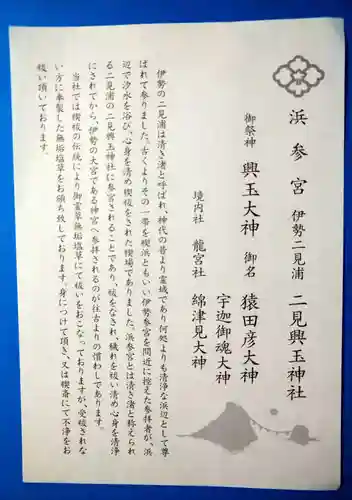 浜参宮 伊勢二見浦 二見興玉神社
御祭神 興玉大神 御名 猿田彦大神
宇迦御魂大神
境内社 龍宮社 綿津見大神
伊勢の二見浦は清き渚と呼ばれ、神代の昔より霊域であり何処よりも清浄な浜辺として尊
ばれて参りました。古くよりその一帯を禊浜ともいい伊勢参宮を間近に控えた参拝者が、浜
辺で汐水を浴び、心身を清め禊祓をされた禊場でありました。浜参宮とは清き渚と称えられ
る二見浦の二見興玉神社に参宮されることであり、祓をなされ穢れを祓い清め心身を清浄
にされてから、伊勢の大宮である神宮へ参拝されるのが往古よりの慣わしであります。
当社では禊祓の伝統により御霊草無垢塩草にて祓いをおこなっておりますが、受祓されな
い方に奉製した無垢塩草をお頒ち致しております。身につけて頂き、又は禊斎にて不浄をお
祓い頂いております。